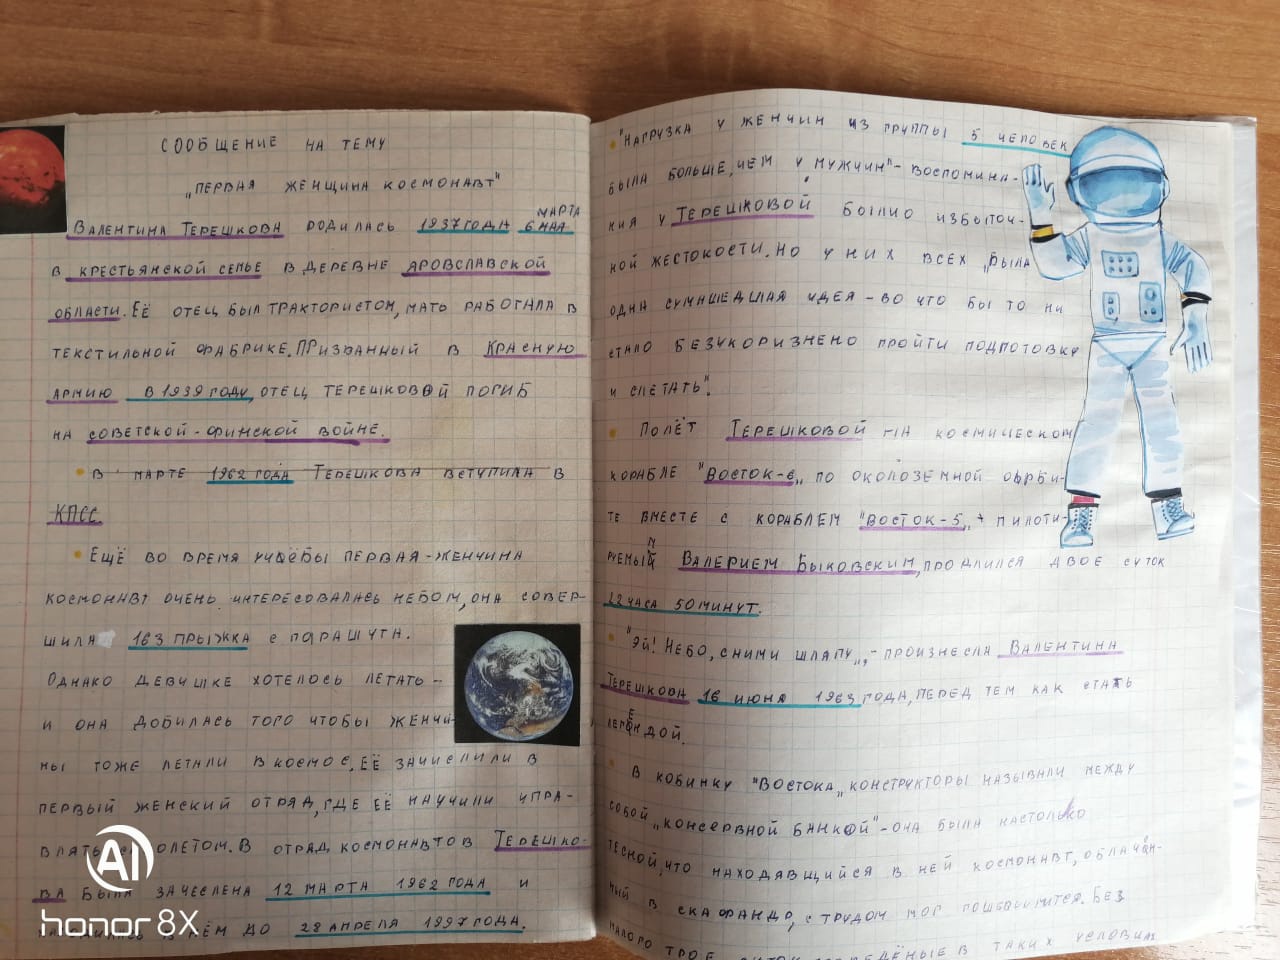 СООБЩЕНИЕ НА ТЕМУ
„ПЕРВАЯ ЖЕНЩИНА КОСМОНАВТ"
МАРТА
ВАЛЕНТИНА ТЕРЕШКОВА РОДИЛАСЬ 1937 ГОДА 6 МАЯ
В КРЕСТЬЯНСКОЙ СЕМЬЕ В ДЕРЕВНЕ ЯРОВСЛАВСКОЙ
ОБЛАСТИ. ЕЁ ОТЕЦ БЫЛ ТРАКТОРИСТОМ, МАТЬ РАБОТАЛА В
ТЕКСТИЛЬНОЙ ФАБРИКЕ. ПРИЗВАННЫЙ В КРАСНУЮ
АРМИЮ В 1939 ГОДУ, ОТЕЦ ТЕРЕШКОВОЙ ПОГИБ
НА СОВЕТСКОЙ-ФИНСКОЙ ВОЙНЕ.
В МАРТЕ 1962 ГОДА ТЕРЕШКОВА ВСТУПИЛА В
КПСС
ЕЩЁ ВО ВРЕМЯ УЧЁБЫ ПЕРВАЯ-ЖЕНЩИНА
КОСМОНАВТ ОЧЕНЬ ИНТЕРЕСОВАЛАСЬ НЕБОМ, ОНА СОВЕР-
ШИЛА 163 ПРЫЖКА С ПАРАШУТА.
ОДНАКО ДЕВУШКЕ ХОТЕЛОСЬ ЛЕТАТЬ-
И ОНА ДОБИЛАСЬ ТОГО ЧТОБЫ ЖЕНЧИ-
НЫ ТОЖЕ ЛЕТАЛИ В КОСМОС. ЕЁ ЗАЧИСЛИЛИ В
ПЕРВЫЙ ЖЕНСКИЙ ОТРЯД, ГДЕ ЕЁ НАУЧИЛИ УПРА-
В ОТРЯД КОСМОНАВТОВ ТЕРЕШКО-
ВА БЫЛА ЗАЧЕСЛЕНА 12 МАРТА 1962 ГОДА И
В НЁМ ДО 28 АПРЕЛЯ 1997 ГОДА.
AI
honor 8X
"НАГРУЗКА У ЖЕНЩИН ИЗ ГРУППЫ 5 ЧЕЛОВЕК
БЫЛА БОЛЬШЕ, ЧЕМ У МУЖЧИН"- ВОСПОМИНА-
НИЯ У ТЕРЕШКОВОЙ БЫЛИО ИЗБЫТОЧ-
НОЙ ЖЕСТОКОСТИ. НО У НИХ ВСЕХ „БЫЛА
ОДНА СУМАШЕДШАЯ ИДЕЯ - ВО ЧТО БЫ ТО НИ
СТАЛО БЕЗУКОРИЗНЕНО ПРОЙТИ ПОДПОТОВКУ
И СЛЕТАТЬ".
ПОЛЁТ ТЕРЕШКОВОЙ НА КОСМИЧЕСКОМ
КОРАБЛЕ "ВОСТОК-6„ ПО ОКОЛОЗЕМНОЙ ОРБИ-
ТЕ ВМЕСТЕ С КОРАБЛЕМ "ВОСТОК-5„ ПИЛОТИ-
РУЕМЫЙ ВАЛЕРИЕМ БЫКОВСКИМ, ПРОДЛИЛСЯ ДВОЕ СУТОК
22 ЧАСА 50 МИНУТ.
"ЭЙ! НЕБО, СНИМИ ШЛЯПУ„,- ПРОИЗНЕСЛА ВАЛЕНТИНА
ТЕРЕШКОВА 16 ИЮНЯ 1963 ГОДА, ПЕРЕД ТЕМ КАК СТАТЬ
ЛЕГЕНДОЙ.
В КОБИНКУ "ВОСТОКА„ КОНСТРУКТОРЫ НАЗЫВАЛИ МЕЖДУ
СОБОЙ „КОНСЕРВНОЙ БАНКОЙ"- ОНА БЫЛА НАСТОЛЬКО
ТЕСНОЙ, ЧТО НАХОДЯВЩИЙСЯ В НЕЙ КОСМОНАВТ, ОБЛАЧЁН-
НЫЙ В СКАФАНДР, С ТРУДОМ МОГ БЕЗ
МАЛОГО ТРОЕ СУТОК В ТАКИХ УСЛОВИЯХ